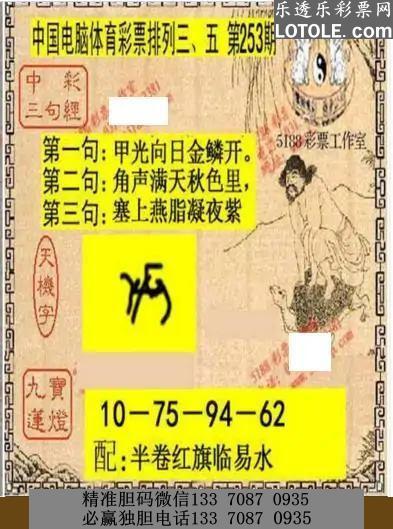 乐透乐彩票网
LOTOLE.com
中国电脑体育彩票排列三、五 第253期
中彩
三句經
5188彩票工作室
第一句: 甲光向日金鳞开。
第二句: 角声满天秋色里,
第三句: 塞上燕脂凝夜紫
天機字
九寶
蓮燈
10－75－94－62
配: 半卷红旗临易水
精准胆码微信133 7087 0935
必赢独胆电话133 7087 0935